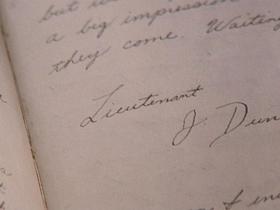 but
a big impression
they come. Waiting
Lieutenant
J. Dun